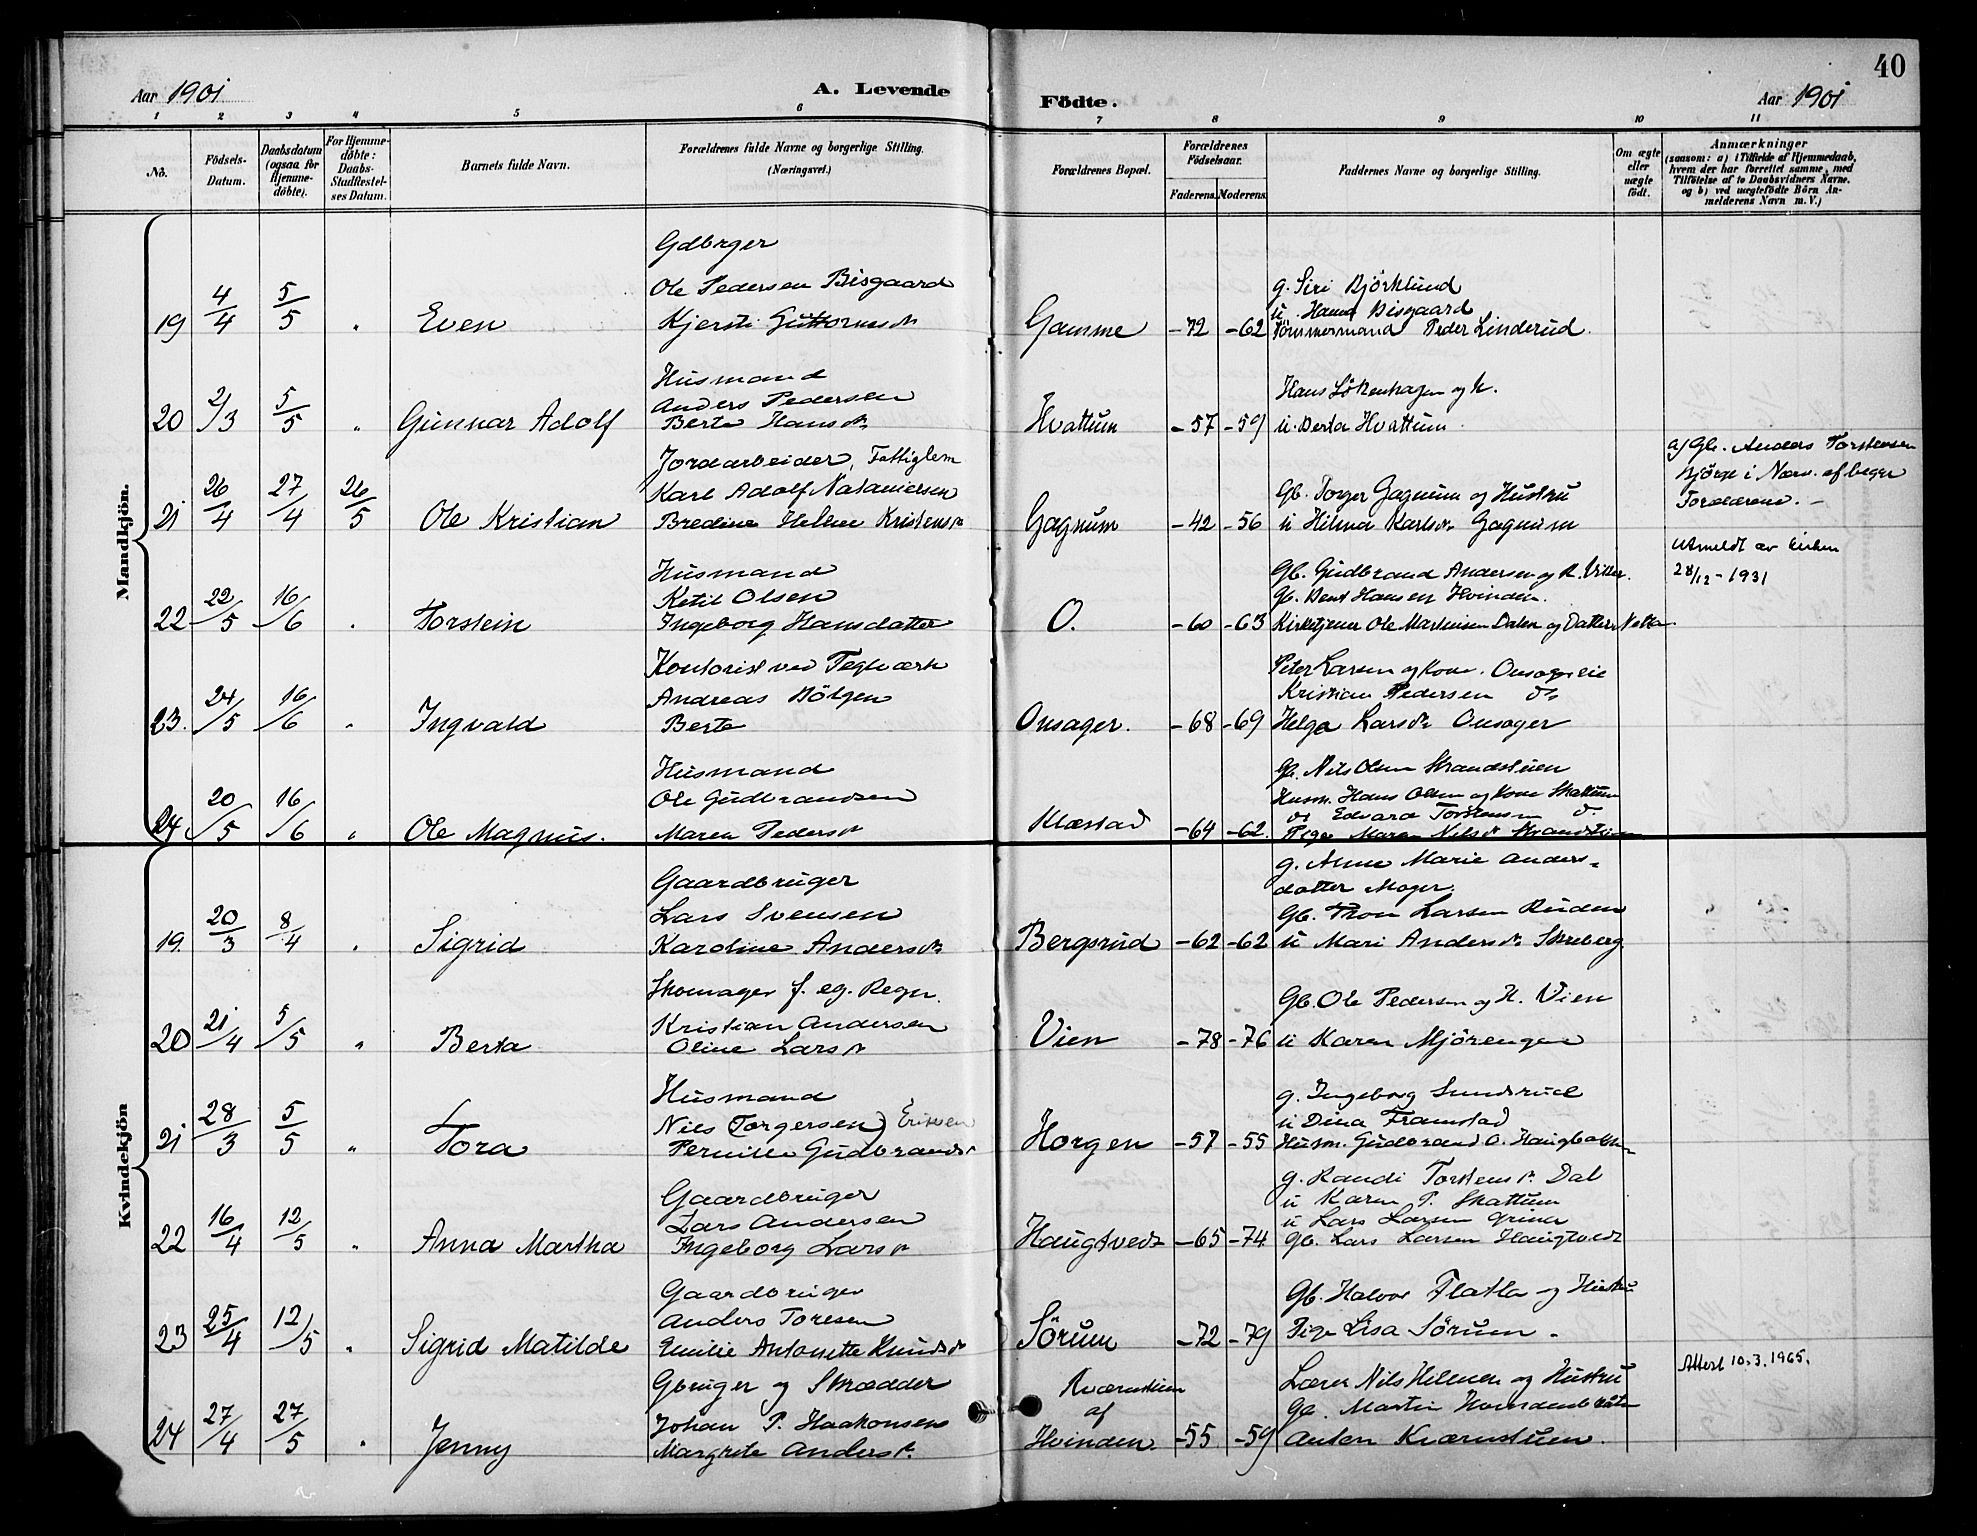 40
Aar 1901
A. Levende
Födte.
Aar 1901
1 2 3 4 5 6 7 8 9 10 11
No.
Födsels-Datum.
Daabsdatum (ogsaa for Hjemmedöbte).
For Hjemmedöbte: Daabs-Stadfæstelses Datum.
Barnets fulde Navn.
Forældrenes fulde Navne og borgerlige Stilling.
(Næringsvei.)
Forældrenes Bopæl.
Forældrenes Födselsaar.
Faderens. Moderens.
Faddernes Navne og borgerlige Stilling.
Om ægte eller uægte født.
Anmærkninger
(saasom: a) i Tilfælde af Hjemmedaab, hvem der har forrettet samme, med Tilföielse af to Daabsvidners Navne, og b) ved uægtefödte Börn Anmelderens Navn m. V.)
Mandkjön.
Gdbrger
Ole Pedersen Bisgaard
g. Siri Björklund
u. Hans Bisgaard
19 4/4 5/5 " Even Kjersti Guttormsdr Gamme -72 -62 Tömmermand Peder Linderud.
Husmand
Anders Pedersen
Hans Lökenhagen og h.
20 2/3 5/5 " Gunnar Adolf Berte Hansdr Hvattum -57 -59 u. Berta Hvattum.
Jordarbeider, Fattiglem
Karl Adolf Nataniersen
Gb. Torger Gagnum og Hustru
21 26/4 27/4 26/5 Ole Kristian Bredine Helene Kristensdr Gagnum -42 -56 u Hilma Karlsdr Gagnum
a) Gb. Anders Torstensen
Björge i Nærv. af begge
Forældrene. -
Husmand
Ketil Olsen
Gb. Gudbrand Andersen og h.
Gb. Bent Hansen Hvinden.
22 22/5 16/6 " Torstein Ingeborg Hansdatter O. -60 -63 Kirketjener Ole Martinsen Dalen og Datter
Utmeldt av kirken
28/12 - 1931
Kontorist ved Teglværk
Andreas Bölgen
Peter Larsen og Kone. Onsagereie
Kristian Pedersen do
23. 24/5 16/6 " Ingvald Berte Onsager. -68 -69 Helga Larsdr Onsager
Husmand
Ole Gudbrandsen
Gb. Nils Olsen Strandstuen
Husm. Hans Olsen og Kone Skattum
do Edvard Torstensen do
24 20/5 16/6 " Ole Magnus. Maren Pedersdr Klæstad -64 -62. Pige Maren Nilsdr Strandstuen
Kvindekjön
Gaardbruger
Lars Svensen
g. Anne Marie Anders-
datter Mager.
Gb. Thon Larsen Ruden
19. 20/3 8/4 " Sigrid Karoline Andersdr Bergsrud -62 -62 u Mari Andersdr Skreberg
Skomager f. eg. Regn.
Kristian Andersen
Gb. Ole Pedersen og H. Vien
20 21/4 5/5 " Berta Oline Larsdr Vien -78 -76 u Karen Mjörengen
Husmand
Nils (Torgersen) Eriksen
g. Ingeborg Sundsrud
u Dina Framstad
21 28/3 5/5 " Tora Pernille Gudbrandsdr Horgen -57 -55 Husm. Gudbrand O. Haugbakken
Gaardbruger
Lars Andersen
g. Randi Torstensdr. Dal
u Karen P. Skattum
u Lars Larsen Grina
22 16/4 12/5 " Anna Martha Ingeborg Larsdr Haugtvedt -65 -74 Gb. Lars Larsen Haugtvedt
Gaardbruger
Anders Toresen
Gb. Halvor Flatla og Hustru
23 25/4 12/5 " Sigrid Matilde Emilie Antonette Knudsdr Sörum -72 -79 Pige Lisa Sörum -
Gbruger og Skrædder
Johan P. Haakonsen
Kværnstuen
af
Lærer Nils Hilmen og Hustru
Gb. Martin Homdenbraten
Attest 10.3.1965.
24 27/4 27/5 " Jenny Margrete Andersdr. Hvinden -55 -59 Anton Kværnstuen.